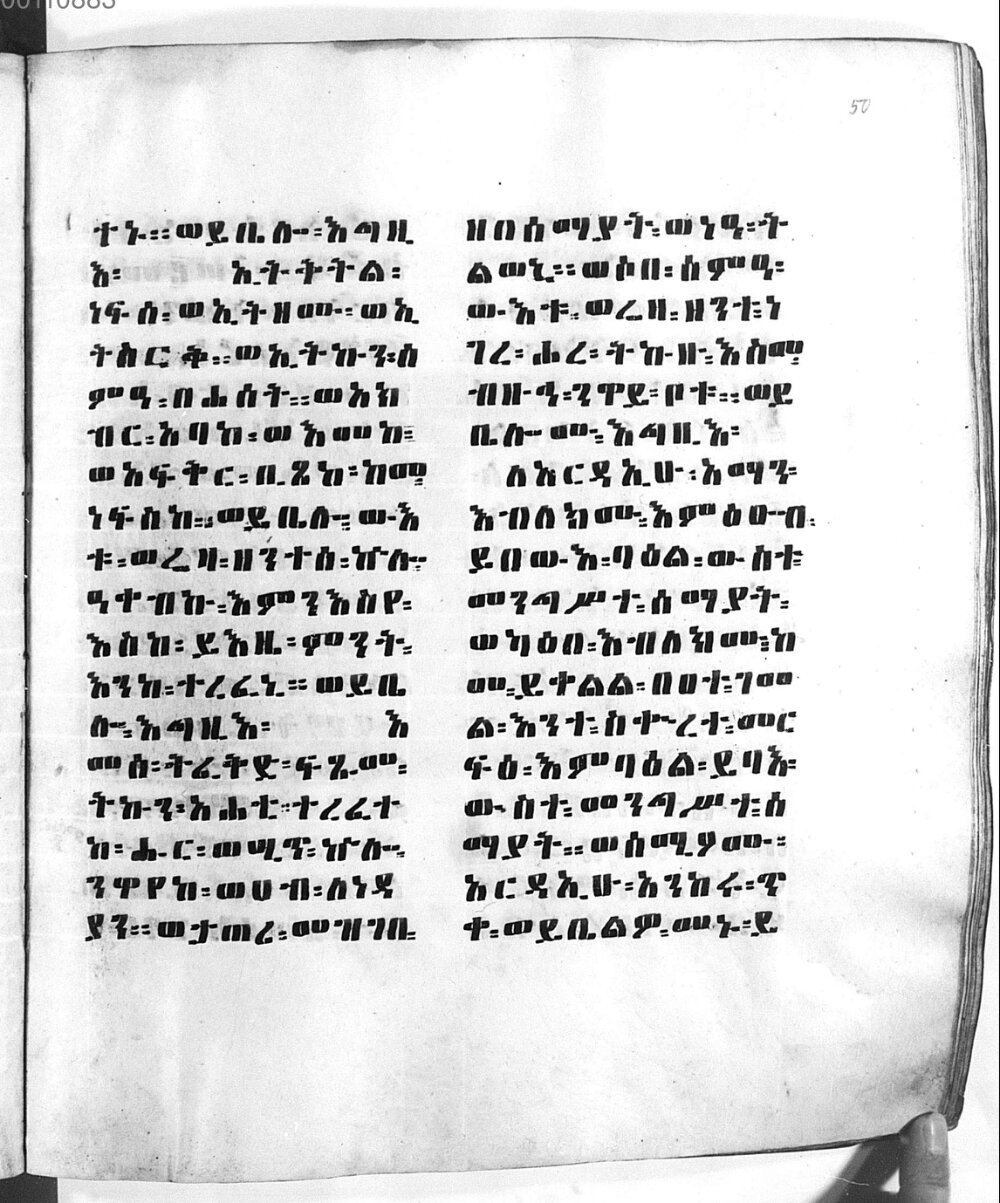 00110883
50
ተኑ። ወይቤሎ፡ እግዚ
እ፡ ኢትትትል፡
ነፍሰ፡ ወኢትዘሙ፡ ወኢ
ትስርቅ። ወኢትኩን፡ ስ
ምዓ፡ በሐሰት። ወአክ
ብር፡ አባከ፡ ወእመከ፡
ወአፍቅር፡ ቢጸከ፡ ከመ
ነፍስከ። ወይቤሎ፡ ውእ
ቱ፡ ወሬዛ፡ ዘንተሰ፡ ኵሎ
ዓቀብኩ፡ እምንእስየ፡
እስከ፡ ይእዜ፡ ምንት፡
እንከ፡ ተረፈኒ። ወይቤ
ሎ፡ እግዚእ፡ እ
መሰ፡ ትፈቅድ፡ ፍጹመ፡
ትኩን፡ አሐቲ፡ ተረፈተ
ከ፡ ሑር፡ ወሢጥ፡ ኵሎ፡
ንዋየከ፡ ወሀብ፡ ለነዳ
ያን። ወታጠሪ፡ መዝገበ፡
ዘበሰማያት፡ ወነዓ፡ ት
ልወኒ። ወሶበ፡ ሰምዓ፡
ውእቱ፡ ወሬዛ፡ ዘንተ፡ ነ
ገረ፡ ሐረ፡ ትኩዘ፡ እስመ
ብዙኅ፡ ንዋይ፡ ቦቱ። ወይ
ቤሎሙ፡ እግዚእ፡
ለአርዳኢሁ፡ አማን፡
እብለክሙ፡ እምዕፁብ፡
ይበውእ፡ ባዕል፡ ውስተ፡
መንግሥተ፡ ሰማያት፡
ወካዕበ፡ እብለክሙ፡ ከ
መ፡ ይቀልል፡ በሀተ፡ ገመ
ል፡ እንተ፡ ስቍረተ፡ መር
ፍዕ፡ እምባዕል፡ ይባእ፡
ውስተ፡ መንግሥተ፡ ሰ
ማያት። ወሰሚዖሙ፡
አርዳኢሁ፡ አንከሩ፡ ጥ
ቀ፡ ወይቤልዎ፡ መኑ፡ ይ